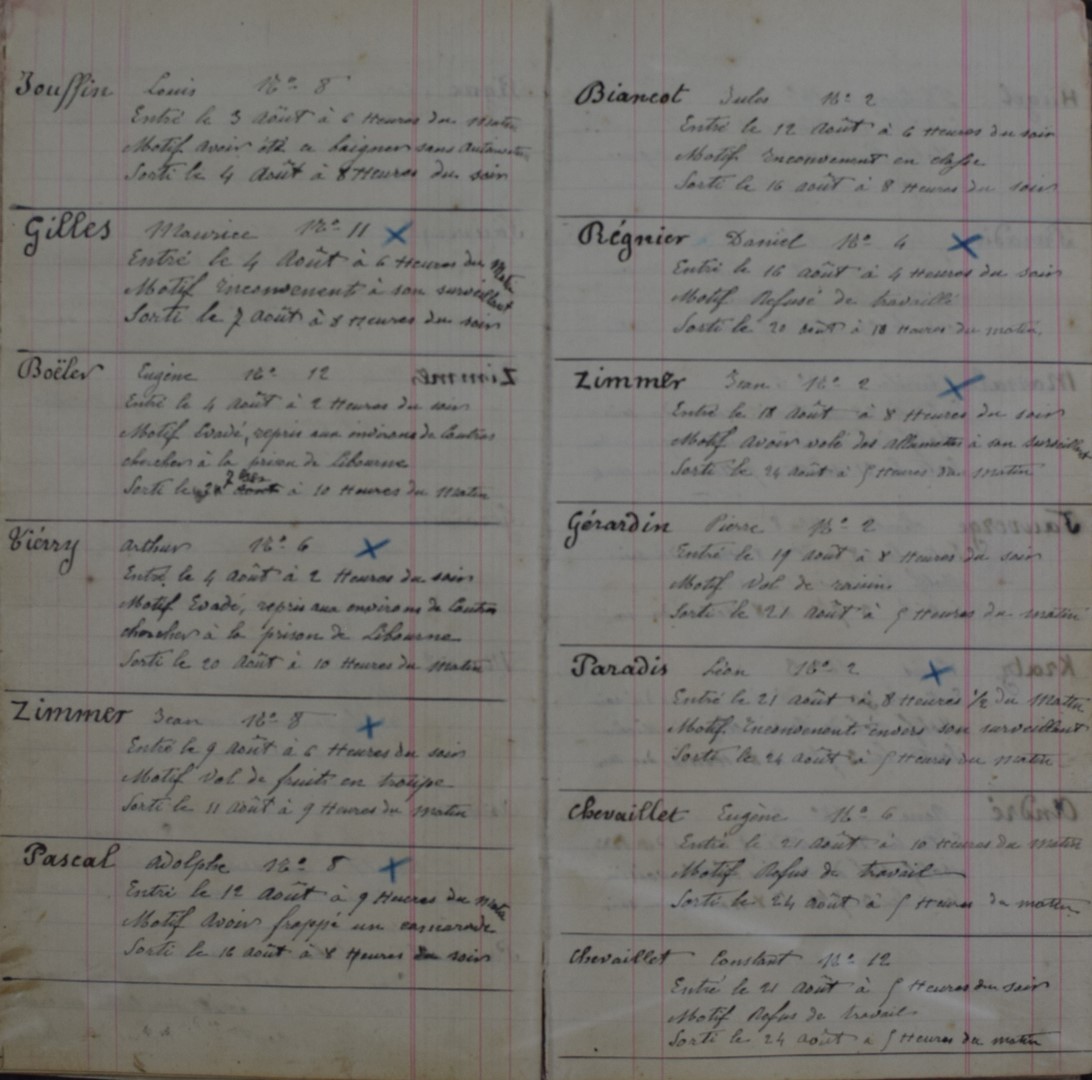 Jouffin Louis No 8
Entré le 3 Août à 6 Heures du matin
Motif avoir été ce baigner sans autorisation
Sorti le 4 Août à 8 Heures du soir
Gilles Maurice No 11
Entré le 4 Août à 6 Heures du Matin
Motif Inconvenent à son surveillant
Sorti le 7 Août à 8 Heures du soir
Boëler Eugène No 12
Entré le 4 Août à 2 Heures du soir
Motif Evadé, repris aux environs de Coutras
chercher à la prison de Libourne
Sorti le à 10 Heures du Matin
Viérry Arthur No 6
Entré le 4 Août à 2 Heures du soir
Motif Evadé, repris aux environs de Coutras
chercher à la prison de Libourne
Sorti le 20 Août à 10 Heures du Matin
Zimmer Jean No 8
Entré le 9 Août à 6 Heures du soir
Motif Vol de fruits en troupe
Sorti le 11 Août à 9 Heures du Matin
Pascal Adolphe No 8
Entré le 12 Août à 9 Heures du Matin
Motif Avoir frappé un camarade
Sorti le 16 Août à 8 Heures du soir
Biancot Jules No 2
Entré le 12 Août à 6 Heures du soir
Motif Inconvenent en classe
Sorti le 16 août à 8 Heures du soir
Régnier Daniel No 4
Entré le 16 août à 4 Heures du soir
Motif Refusé de travaillé
Sorti le 20 août à 10 Heures du matin
Zimmer Jean No 2
Entré le 18 Août à 8 Heures du soir
Motif Avoir volé des allumettes à son surveillant
Sorti le 24 août à 5 Heures du Matin
Gérardin Pierre No 2
Entré le 19 août à 8 Heures du soir
Motif Vol de raisins
Sorti le 21 Août à 5 Heures du matin
Paradis Léon No 2
Entré le 21 août à 8 Heures 1/2 du Matin
Motif Inconvenent envers son surveillant
Sorti le 24 août à 5 Heures du matin
Chevaillet Eugène No 6
Entré le 21 Août à 10 Heures du Matin
Motif Refus de travail
Sorti le 24 Août à 5 Heures du matin
Chevaillet Constant No 12
Entré le 21 Août à 5 Heures du soir
Motif Refus de travail
Sorti le 24 août à 5 Heures du matin